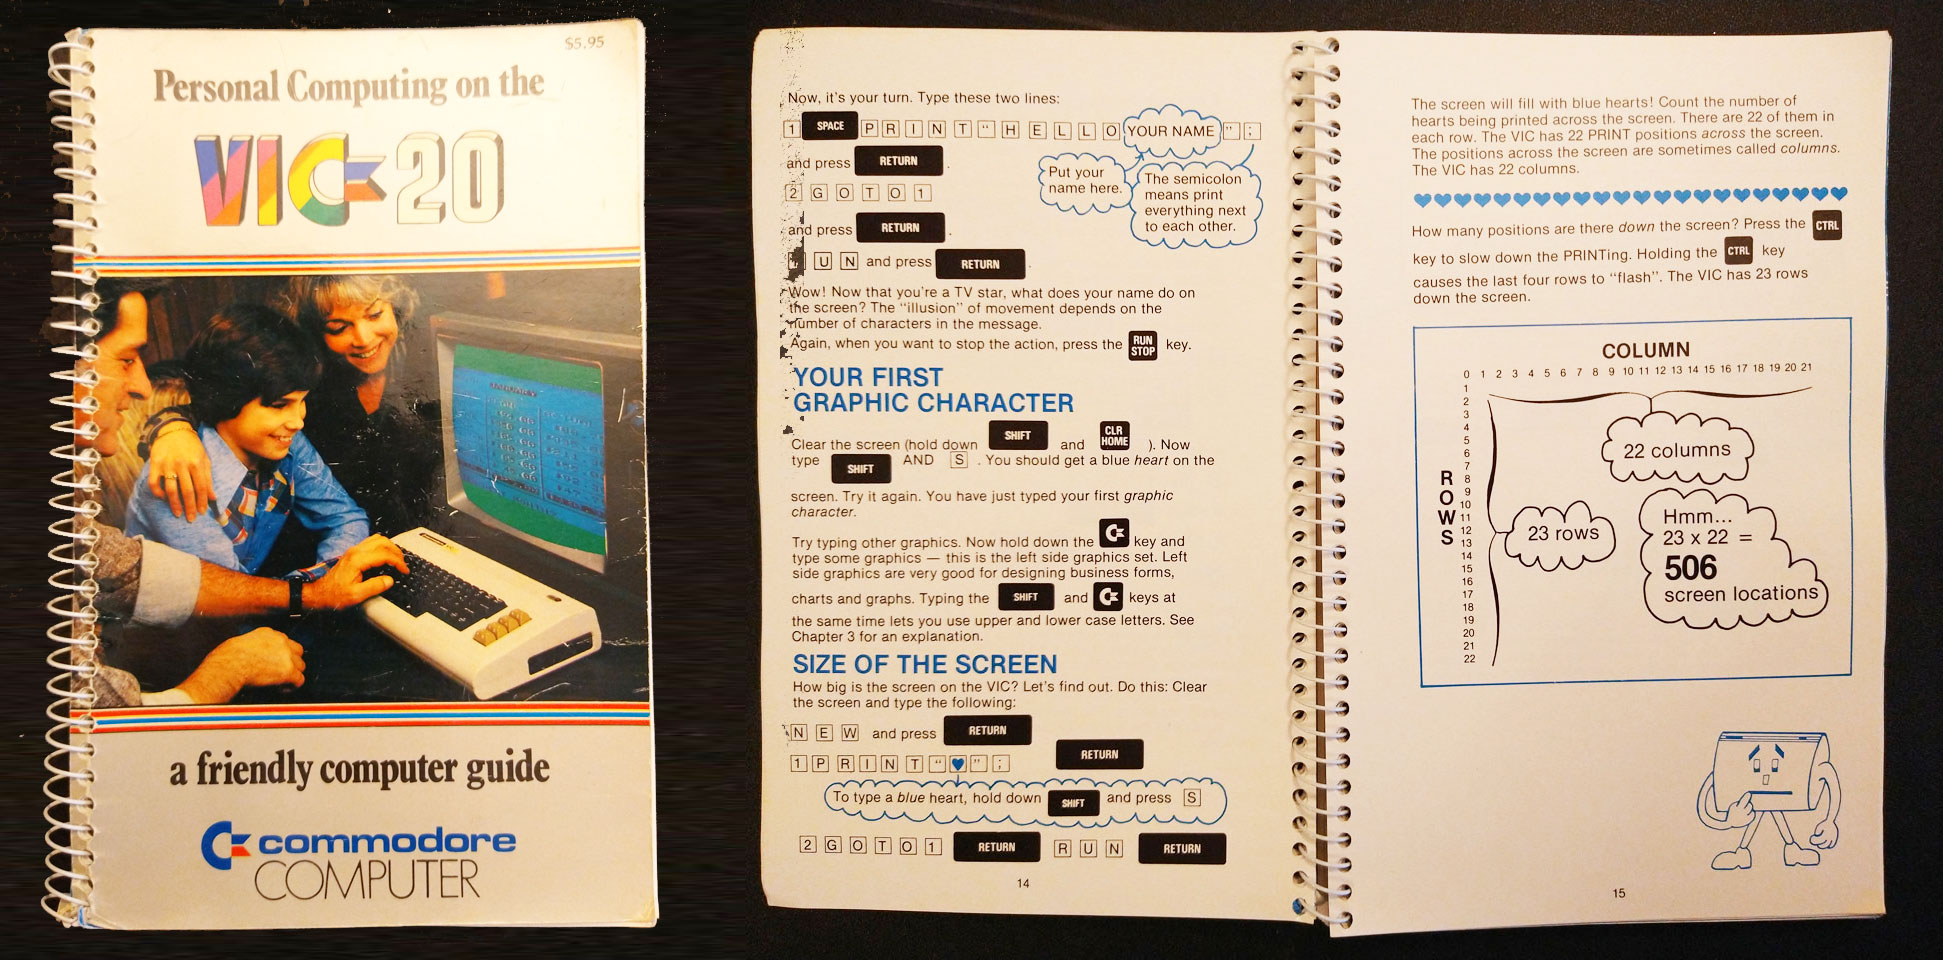 $5.95
Personal Computing on the
VIC-20
a friendly computer guide
commodore
COMPUTER
Now, it's your turn. Type these two lines:
1 SPACE PRINT "HELLO YOUR NAME";
and press RETURN.
Put your
name here.
The semicolon
means print
everything next
to each other.
2GOTO1
and press RETURN.
UN and press RETURN.
Wow! Now that you're a TV star, what does your name do on
the screen? The "illusion" of movement depends on the
number of characters in the message.
Again, when you want to stop the action, press the RUN STOP key.
YOUR FIRST
GRAPHIC CHARACTER
Clear the screen (hold down SHIFT and CLR HOME ). Now
type SHIFT AND S . You should get a blue heart on the
screen. Try it again. You have just typed your first graphic
character.
Try typing other graphics. Now hold down the C= key and
type some graphics — this is the left side graphics set. Left
side graphics are very good for designing business forms,
charts and graphs. Typing the SHIFT and C= keys at
the same time lets you use upper and lower case letters. See
Chapter 3 for an explanation.
SIZE OF THE SCREEN
How big is the screen on the VIC? Let's find out. Do this: Clear
the screen and type the following:
NEW and press RETURN
1PRINT"♥"; RETURN
To type a blue heart, hold down SHIFT and press S
2GOTO1 RETURN RUN RETURN
14
The screen will fill with blue hearts! Count the number of
hearts being printed across the screen. There are 22 of them in
each row. The VIC has 22 PRINT positions across the screen.
The positions across the screen are sometimes called columns.
The VIC has 22 columns.
How many positions are there down the screen? Press the CTRL
key to slow down the PRINTing. Holding the CTRL key
causes the last four rows to "flash". The VIC has 23 rows
down the screen.
COLUMN
0 1 2 3 4 5 6 7 8 9 10 11 12 13 14 15 16 17 18 19 20 21
1
2
3
4
5
6
7
8
9
10
11
12
13
14
15
16
17
18
19
20
21
22
ROWS
22 columns
23 rows
Hmm...
23 x 22 =
506
screen locations
15